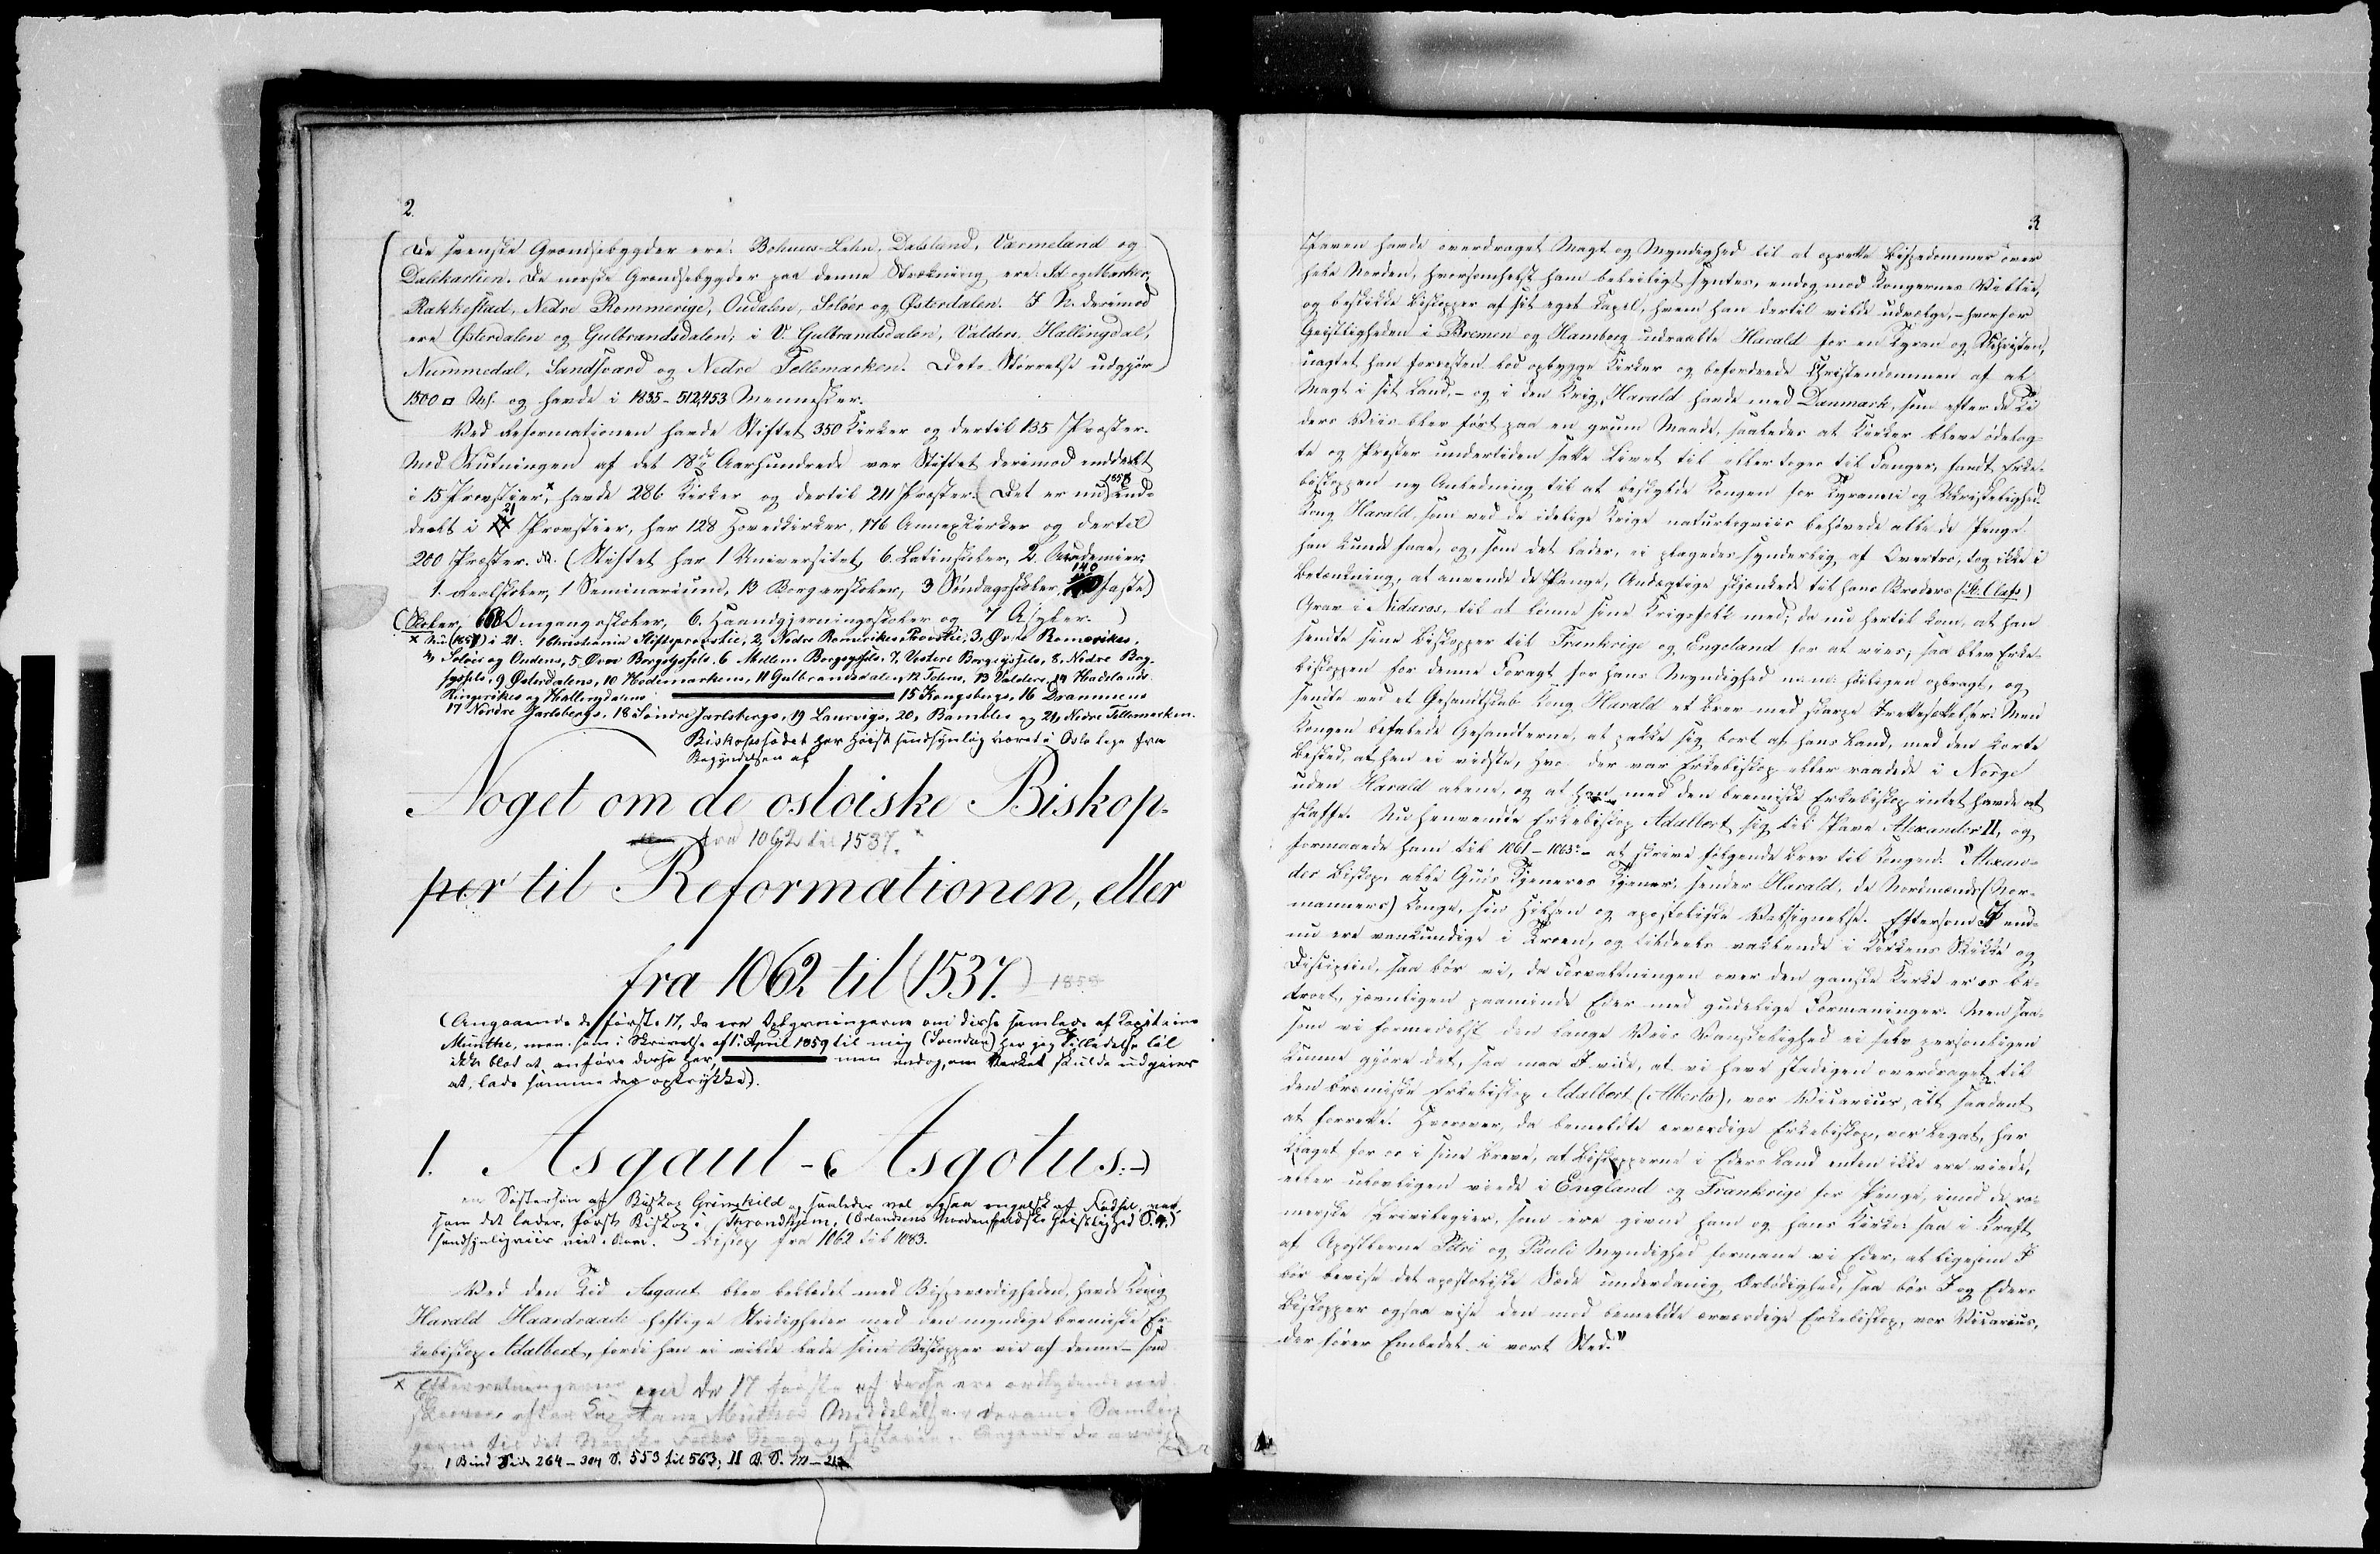 2.
De svenske Grændsebygder ere: Bohuus-Lehn, Dalsland, Værmeland og
Dalekarlien. De norske Grændsebygder paa denne Strækning ere: Id og Marker,
Rakkestad, Nedre Rommerige, Oudalen, Soløer og Østerdalen. I N. derimod
ere Østerdalen og Gulbrandsdalen; i V. Gulbrandsdalen, Valders, Hallingdal,
Nummedal, Sandsværd og Nedre Tellemarken. Dets Størrelse udgjør
1500 □ M. og havde i 1835 - 512,453 Mennesker.
Ved Reformationen havde Stiftet 350 Kirker og dertil 135 Præster.
Med Slutningen af det 18de Aarhundrede var Stiftet derimod inddeelt
i 15 Provstier,x havde 286 Kirker og dertil 211 Præster. (Det er nu 1858 ind-
deelt i 21 Provstier, har 128 Hovedkirker, 176 Annexkirker og dertil
200 Præster. (Stiftet har 1 Universitet, 6 Latinskoler, 2 Academier,
1 Realskoler, 1 Seminarium, 13 Borgerskoler, 3 Søndagsskoler, 140 faste
Skoler, Omgangsskoler, 6 Haandgjerningsskoler og 7 Asyler.)
x Nu (1857) i 21: 1 Christiania Stiftsprovstie, 2, Nedre Romerikes Provstie, 3, Øvre Romerikes,
4, Soløer og Oudens, 5 Øvre Borgesyssels, 6 Mellem Borgesyssels, 7, Vestere Borgesyssels, 8, Nedre Borg-
syssels, 9 Østerdalens, 10 Hedemarkens, 11 Gulbransdalen, 12 Totens, 13 Valders, 14 Hadelands
Ringerikes og Hallingdalens 15 Kongsbergs, 16 Drammens
17 Nordre Jarlsbergs, 18 Søndre Jarlsbergs, 19 Laurvigs, 20, Bambles og 21, Nedre Tellemarken.
Biskopssædet har høist sandsynlig været i Oslo lige fra
Begyndelsen af
Noget om de osloiske Biskop-
fra 1062 til 1537.
per til Reformationen, eller
fra 1062 til (1537.) 1858
(Angaaende de første 17, da ere Oplysningerne om disse samlede af Capitaine
Munthe, men som i Skrivelse af 1 April 1859 til mig (Svendsen) har jeg Tilladelse til
ikke blot at anføre disse her, men endog, om Værket skulde udgives
at lade samme der optrykke).
1. Asgaut - (Asgotus:-)
en Søstersøn af Biskop Grimkild og saaledes vel ogsaa engelsk af Fødsel, var,
som det lader, først Biskop i Throndhjem, (Erlandsens Nordenfjeldske Geistlighed S. 4.)
sandsynligviis viet i Rom. Biskop fra 1062 til 1083.
Ved den Tid Asgaut blev beklædet med Bispeværdigheden, havde Kong
Harald Haardraade heftige Stridigheder med den myndige bremiske Er-
kebiskop Adalbert, fordi han ei vilde lade sine Biskopper vie af denne - som
x Efterretningerne om de 17 første af disse ere ordlydende ned-
skrevne efter Capitaine Munthes Meddelelse, derom i Samlin-
gerne til det Norske Folks Sprog og Historie.
1 Bind Side 264 - 304 S. 553 til 563; II B. S.
3
Paven havde overdraget Magt og Myndighed til at oprette Bispedømmer over
hele Norden, hvorsomhelst ham beleiligt syntes, endog mod Kongernes Villie,
og beskikke Biskopper af sit eget Kapel, hvem han dertil vilde udvælge, - hvorfor
Geistligheden i Bremen og Hamborg udraabte Harald for en Tyran og Uchristen,
uagtet han forresten lod opbygge Kirker og befordrede Christendommen af al
Magt i sit Land, - og i den Krig, Harald havde med Danmark, som efter de Ti-
ders Viis blev ført paa en grum Maade, saaledes at Kirker bleve ødelag-
te og Præster undertiden satte Livet til eller toges til Fanger, fandt Erke-
biskoppen ny Anledning til at beskylde Kongen for Tyranni og Uchristelighed.
Kong Harald, som ved de idelige Krige naturligviis behøvede alle de Penge
han kunde faae, og, som det lader, ei plagedes synderlig af Overtro, tog ikke i
Betænkning, at anvende de Penge, Andægtige skjænkede til hans Broders (St. Olafs)
Grav i Nidaros, til at lønne sine Krigsfolk med; da nu hertil kom, at han
sendte sine Biskopper til Frankrige og Engeland for at vies; saa blev Erke-
biskoppen for denne Foragt for hans Myndighed høiligen opbragt, og
sendte ved et Gesandtskab Kong Harald et Brev med skarpe Irettesættelser: Men
Kongen befalede Gesandterne, at pakke sig bort af hans Land, med den korte
Besked, at han ei vidste, hvo der var Erkebiskop eller raadede i Norge
uden Harald alene, og at han med den bremiske Erkebiskop intet havde at
skaffe. Nu henvendte Erkebiskop Adalbert sig til Pave Alexander II, og
formaaede ham til 1061 - 1063 - at skrive følgende Brev til Kongen: "Alexan-
der Biskop, alle Guds Tjeneres Tjener, sender Harald, de Nordmænds (Nor-
manners) Konge, sin Hilsen og apostoliske Velsignelse. Eftersom I end-
nu ere vankundige i Troen, og tildeels vaklende i Kirkens Skikke og
Disciplin, saa bør vi, da Forvaltningen over den ganske Kirke er os be-
troet, jævnligen paaminde Eder med gudelige Formaninger. Men saa-
som vi formedelst den lange Veis Vanskelighed ei selv personligen
kunne gjøre det, saa maa I vide, at vi have stadigen overdraget til
den bremiske Erkebiskop Adalbert (Alberto), vor Vicarius, alt saadant
at forrette. Hvorover, da bemeldte ærværdige Erkebiskop, vor Legat, har
klaget for os i sine Breve, at Biskopperne i Eders Land enten ikke ere viede,
eller ulovligen viede i England og Frankrige for Penge, imod de ro-
merske Privilegier, som ere givne ham og hans Kirke: saa i Kraft
af Apostlerne Petri og Pauli Myndighed formane vi Eder, at ligesom I
bør bevise det apostoliske Sæde underdanig Ærbødighed, saa bør I og Eders
Biskopper ogsaa vise den mod bemeldte ærværdige Erkebiskop, vor Vicarius,
der fører Embedet i vort Sted."